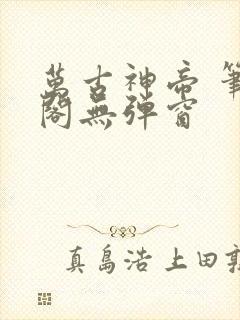 萬古神帝 筆
閣無彈窗
真島浩 上田敦